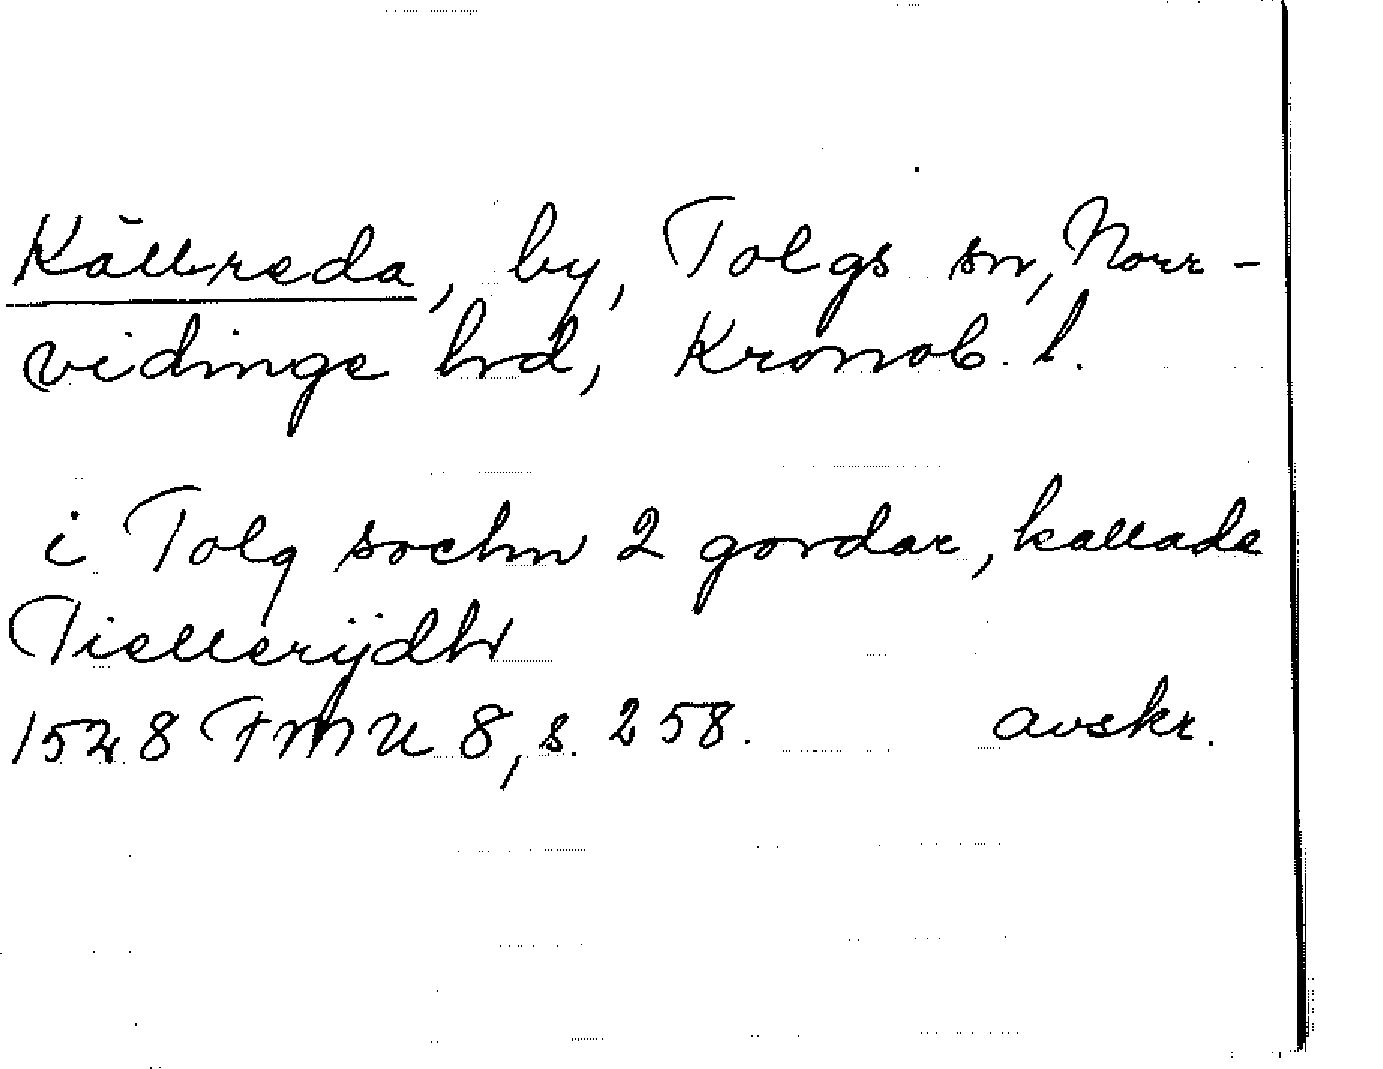 Källreda, by, Tolgs sn, Norr-
vidinge hrd, Kronob. l.
i Tolg sochn 2 gordar, kallade
Tiellerijdh
1528 FMU 8, s. 258. avskr.